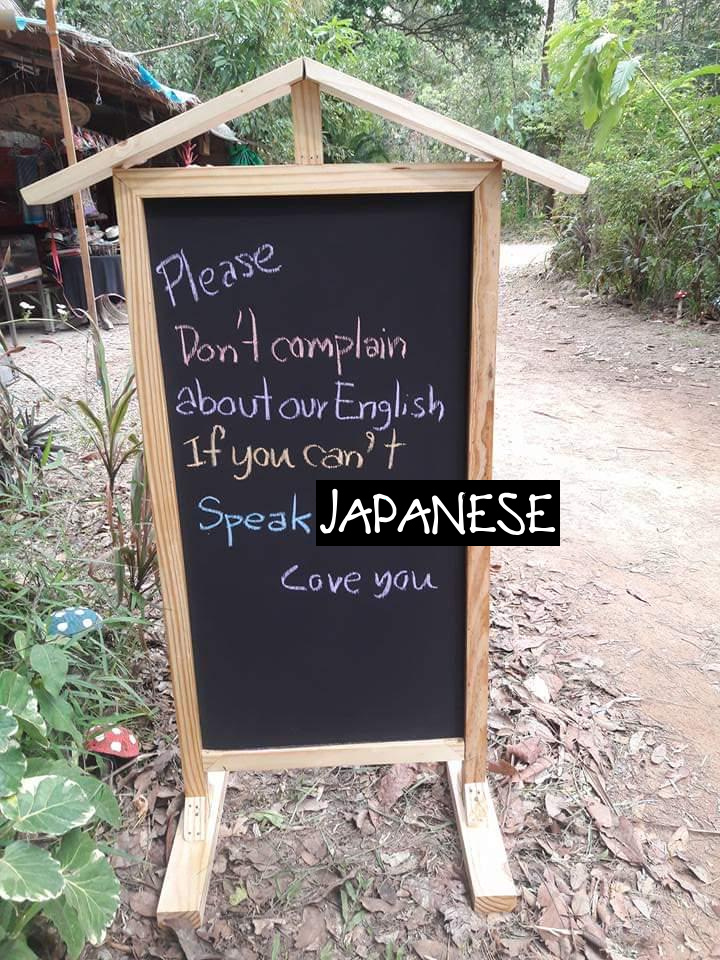 Please
Don't complain
about our English
If you can't
Speak JAPANESE
Love you